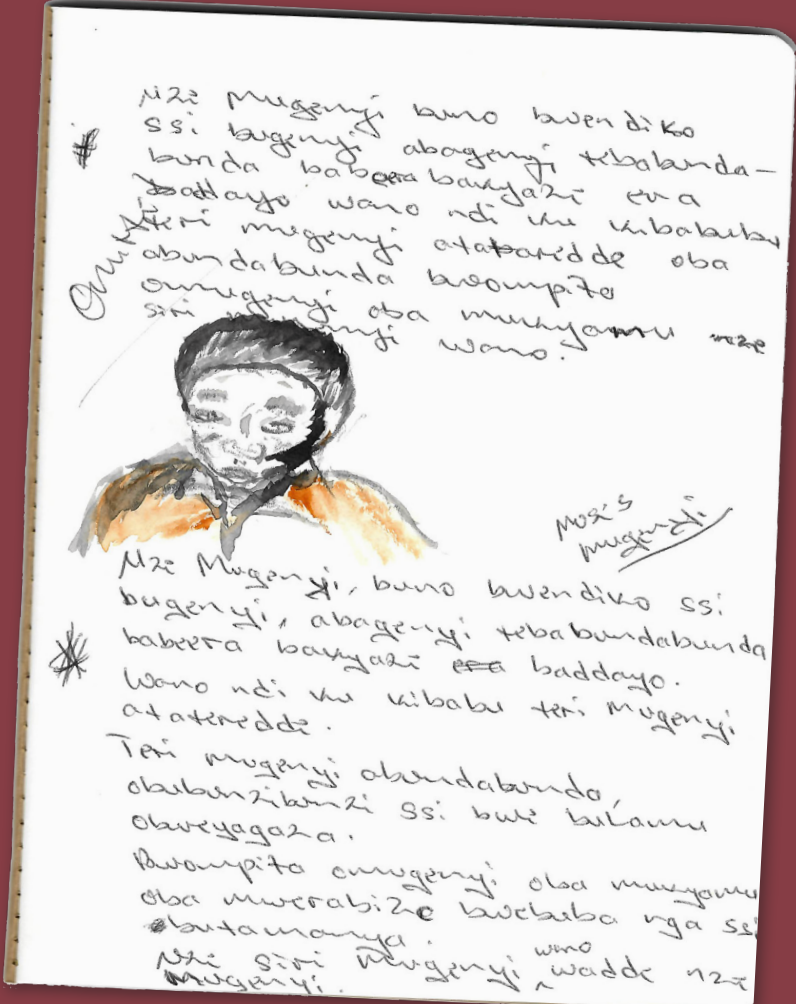 Nze mugenyi buno bwendiko
ssi bugenyi abagenyi tebabunda-
bunda babeera bakyazi era
baddayo wano ndi ku kibabubu
teri mugenyi atataredde oba
abundabunda bwompita
omugenyi oba mukyamu nze
siri mugenyi wano.
Nze's
mugenyi
Nze Mugenyi, buno bwendiko ssi
bugenyi, abagenyi tebabundabunda
babeera bakyazi era baddayo.
Wano ndi ku kibabu teri mugenyi
atateredde.
Teri mugenyi abundabunda,
obubunzibunzi ssi bwe bulamu
obweyagaza.
Bwompita omugenyi oba mukyamu
oba mwerabize bwebuba nga ssi
butamanya.
Nze siri mugenyi wano wadde nze
mugenyi.